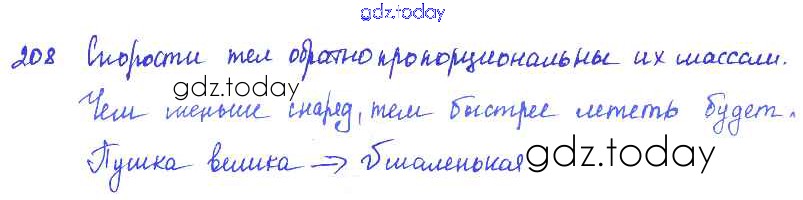 gdz.today
208 Скорости тел обратно пропорциональны их массам.
gdz.today
Чем меньше снаряд, тем быстрее лететь будет.
Пушка велика → v маленькая gdz.today